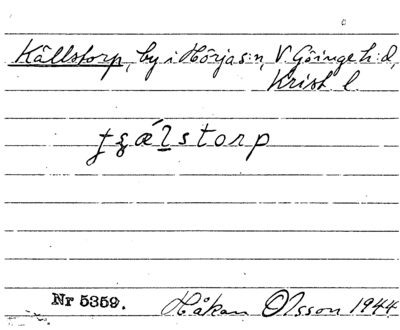 Källstorp, by i Hörjas:n, V. Göinge h:d,
Krist l.
ƫʒǽl̲storp
Nr 5359.
Håkan Olsson 1944